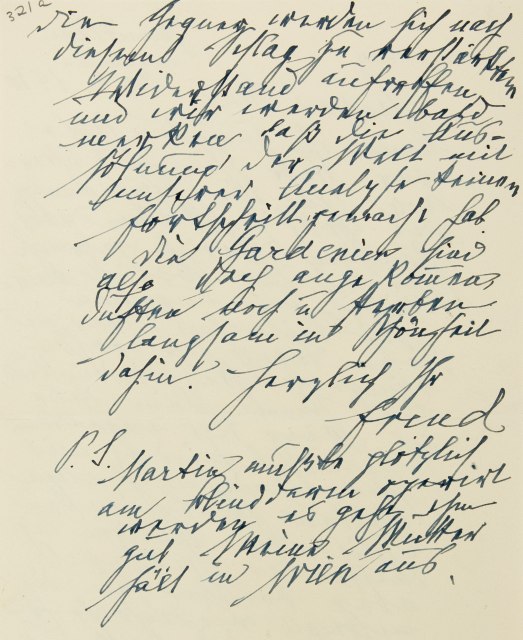 32/2
die Gegner werden sich nach
diesem Schlag zu verstärktem
Widerstand aufraffen
und wir werden bald
merken daß die Aus-
söhnung der Welt mit
unserer Analyse keinen
Fortschritt gemacht hat
Die Gardenien sind
also doch angekommen,
duften noch u sterben
langsam in Schönheit
dahin. Herzlich Ihr
Freud
P. S.
Martin mußte plötzlich
am Blinddarm operiert
werden, es geht ihm
gut. Meine Mutter
hält in Wien aus.